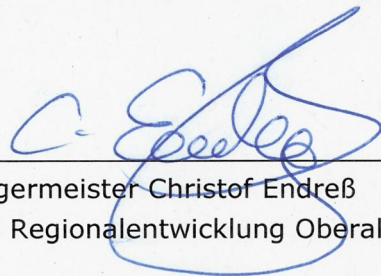 C. Endreß
germeister Christof Endreß
Regionalentwicklung Oberal